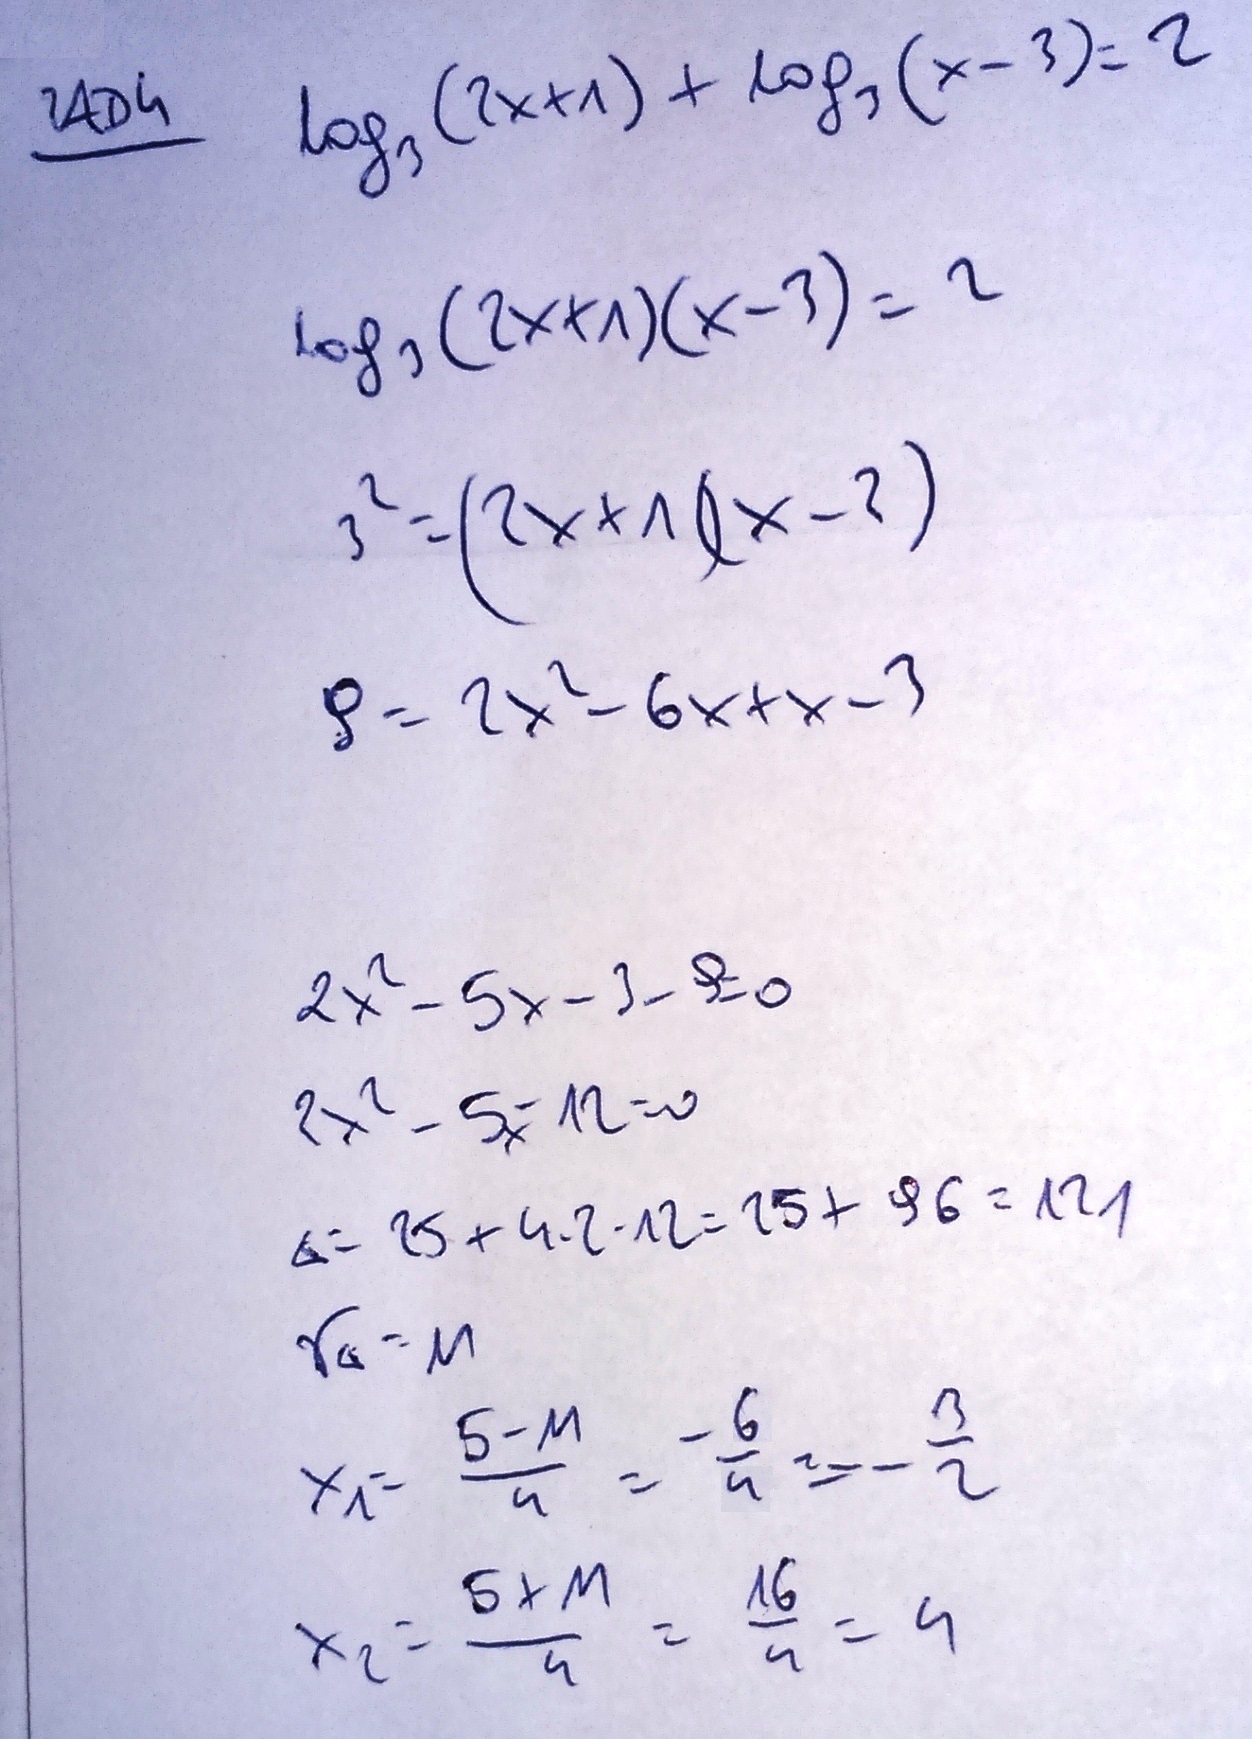 ZAD4 log₃(2x+1) + log₃(x-3) = 2
log₃(2x+1)(x-3) = 2
3² = (2x+1)(x-3)
9 = 2x² - 6x + x - 3
2x² - 5x - 3 - 9 = 0
2x² - 5x - 12 = 0
Δ = 25 + 4·2·12 = 25 + 96 = 121
√Δ = 11
x₁ = (5-11)/4 = -6/4 = -3/2
x₂ = (5+11)/4 = 16/4 = 4